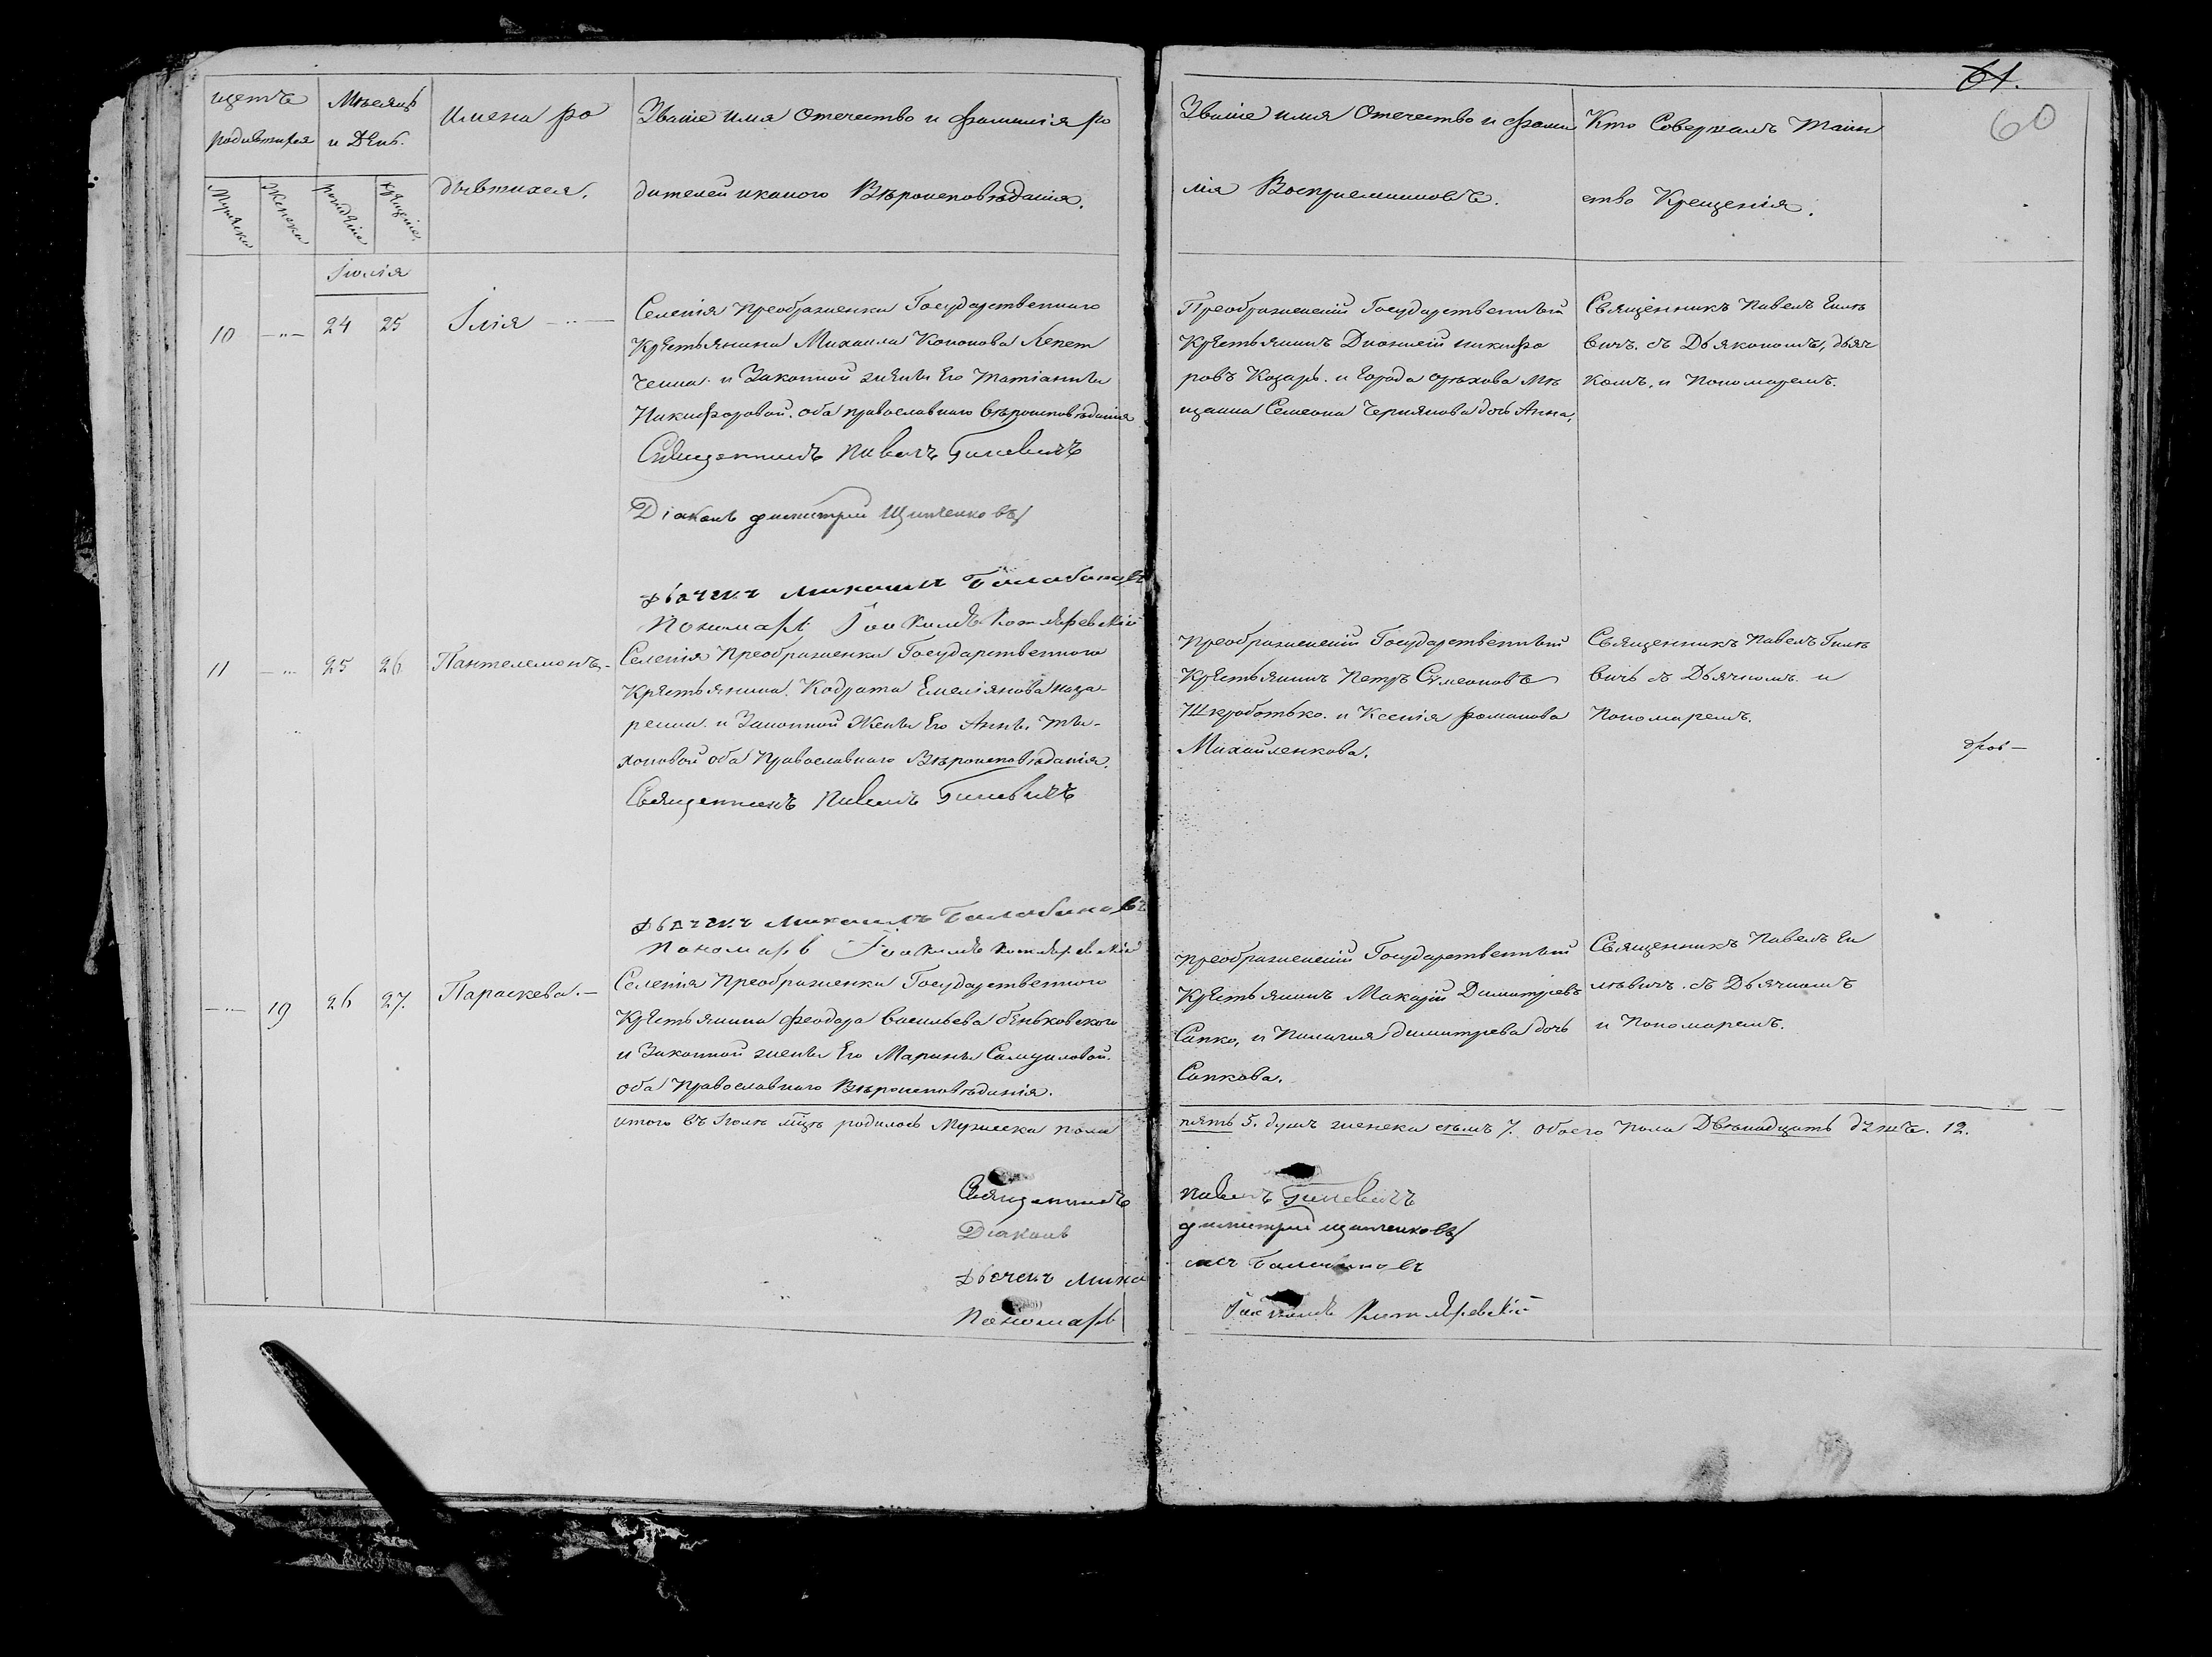 61.
60
щетъ родившихся
Мѣсяцъ и День.
Имена ро
дившихся.
Званіе имя Отечество и фамилія ро
дителей и какого Вѣроисповѣданія.
Званіе имя Отечество и фами
лія Воспріемниковъ.
Кто Совершалъ Таин
ство Крещенія.
Мужска
Женска
рожденіе
крещеніе
Іюлія
10
24
25
Ілія
Селенія Преображенки Государственнаго
Крестьянина Михаила Кононова Лепет
ченка и Законной жены Его Татіанны
Никифоровой. оба православнаго вѣроисповѣданія
Священникъ Павелъ Гилевичъ
Діаконъ димитрій Щипченковъ
дьячекъ Михаилъ Балабановъ
Пономарь Іоакимъ Котляревскій
Преображенскій Государственный
Крестьянинъ Дионисій никифо
ровъ Козарь. и Города орѣхова Мѣ
щанина Семеона Чернякова дочь Анна,
Священникъ Павелъ Гилѣ
вичъ. съ Дьякономъ, дьяч
комъ, и Пономаремъ.
11
25
26
Пантелемонъ
Селенія Преображенки Государственного
Крестьянина. Кодрата Емеліянова наза-
ренка. и Законной Жены Его Анны Ти-
хоновой оба Православнаго Вѣроисповѣданія.
Священникъ Павелъ Гилевичъ
дьячекъ Михаилъ Балабановъ
Пономарь Іоакимъ Котляревскій
Преображенскій Государственный
Крестьянинъ Петръ Симеоновъ
Шкроботько. и Ксенія романова
Михайленкова.
Священникъ Павелъ Гилѣ
вичъ съ Дьячкомъ и
Пономаремъ.
19
26
27.
Параскева.
Селенія Преображенки Государственного
Крестьянина Феодора Васильева бѣньковского
и Законной жены Его Марины Самуиловой.
оба Православнаго Вѣроисповѣданія.
Преображенскій Государственный
Крестьянинъ Макарій Димитріевъ
Сапко, и Пилагия димитрева дочь
Сапкова.
Священникъ Павелъ Ги
лѣвичъ. съ Дьячкомъ
и Пономаремъ.
итого въ Іюлѣ мѣцѣ родилось Мужеска пола пять 5. душъ женска семъ 7. обоего Пола Двѣнадцать душъ. 12.
Священникъ Павелъ Гилевичъ
Діаконъ димитрій щипченковъ
дьячекъ Миха илъ Балабановъ
Пономарь Іоакимъ Котляревскій